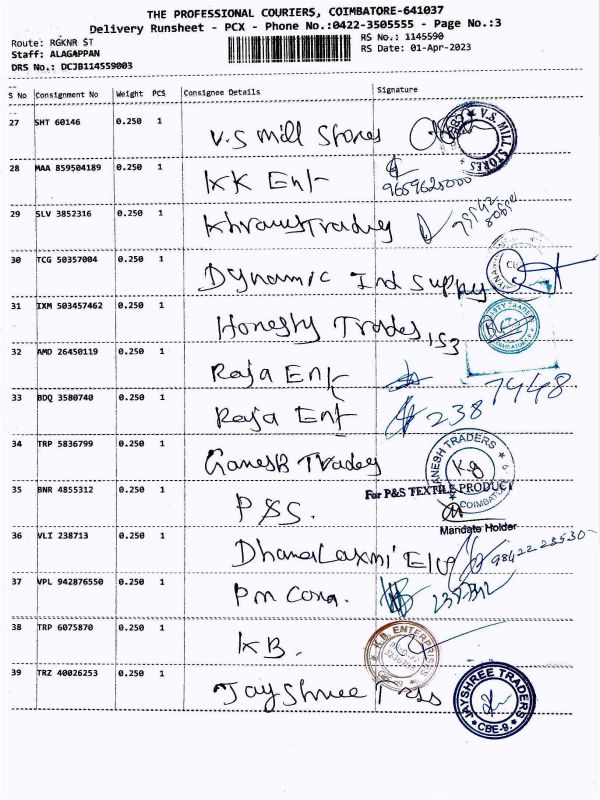 THE PROFESSIONAL COURIERS, COIMBATORE-641037
Delivery Runsheet - PCX - Phone No.:0422-3505555 - Page No.:3
Route: RGKNR ST
RS No.: 1145590
Staff: ALAGAPPAN
RS Date: 01-Apr-2023
DRS No.: DCJB114559003
S No Consignment No Weight PCS Consignee Details Signature
27 SHT 60146 0.250 1 V.S Mill Stores
V.S. MILL STORES
28 MAA 859504189 0.250 1 KK Ent
9659625000
29 SLV 3852316 0.250 1
30 TCG 50357004 0.250 1 Dynamic Ind Supply
31 IXM 503457462 0.250 1 Honesty Trades 153
32 AMD 26450119 0.250 1 Raja Ent
33 BDQ 3580740 0.250 1 Raja Ent 238 7448
34 TRP 5836799 0.250 1 Ganesh Trades
GANESH TRADERS
COIMBATORE
35 BNR 4855312 0.250 1 P&S.
For P&S TEXTILE PRODUCT
Mandate Holder
36 VLI 238713 0.250 1 DhanaLaxmi
98422 23530
37 VPL 942876550 0.250 1
38 TRP 6075870 0.250 1 KB.
K.B. ENTERPRISES
39 TRZ 40026253 0.250 1 Jay Shree
JAYSHREE TRADERS
CBE-9.